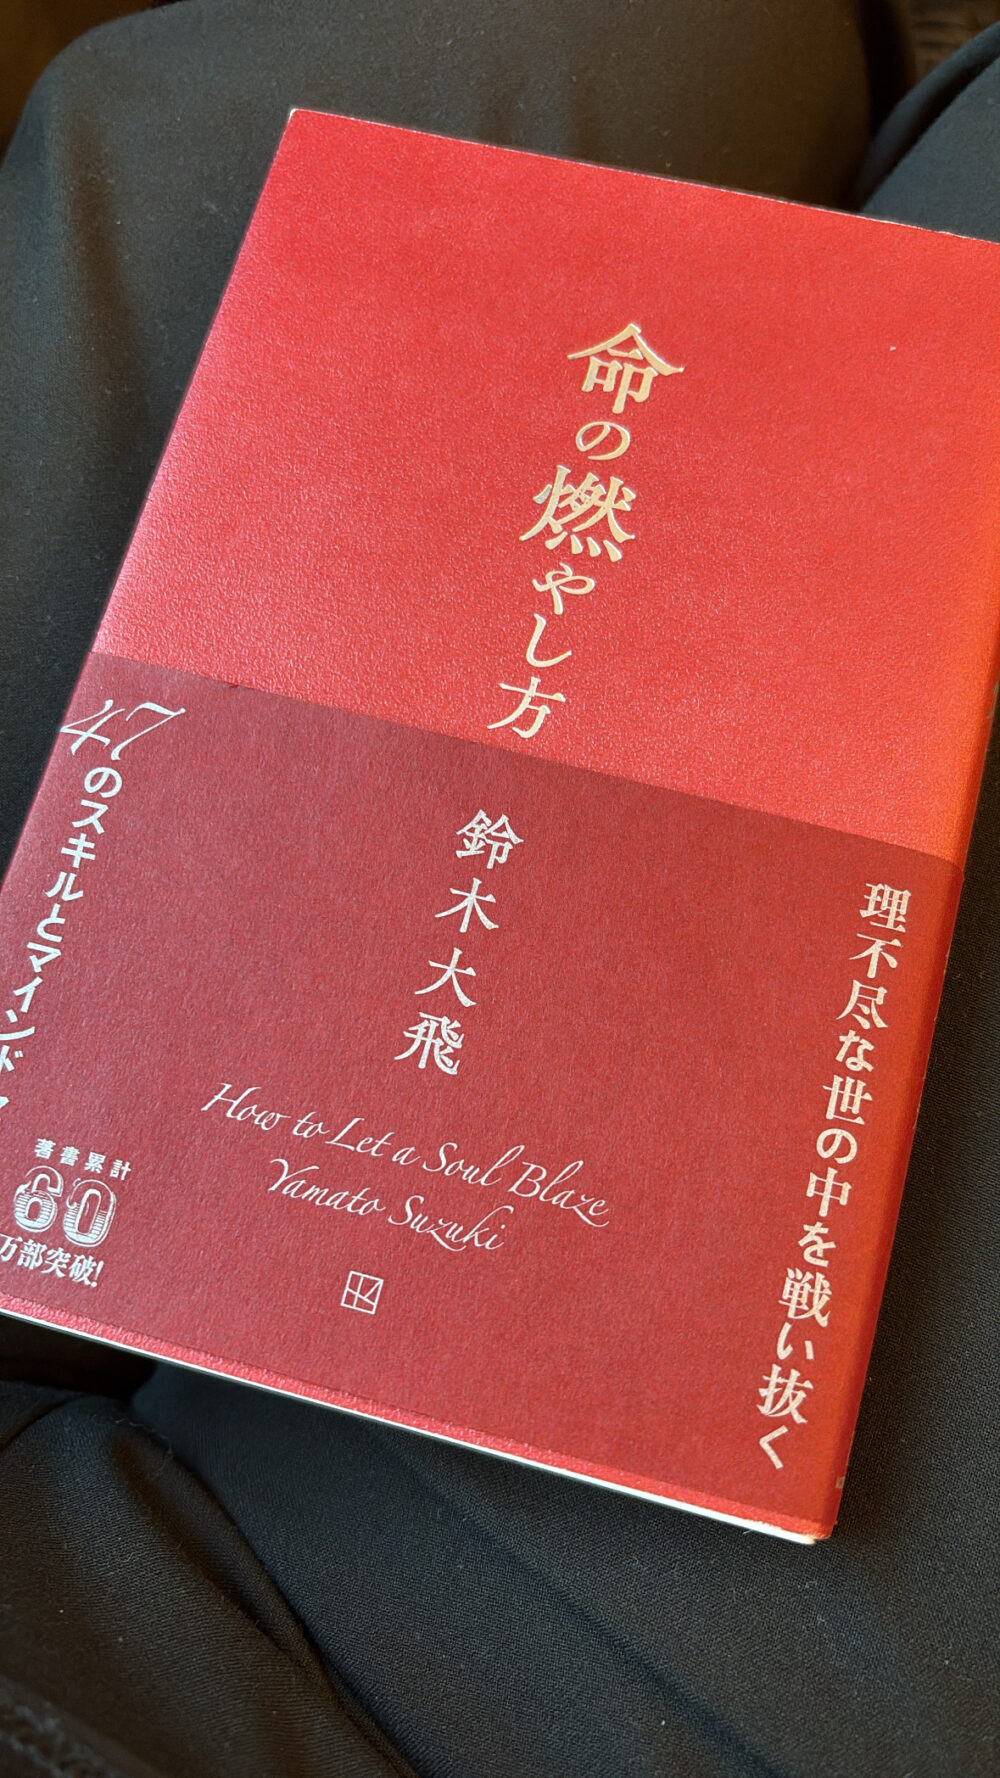 命の燃やし方
理不尽な世の中を戦い抜く
鈴木大飛
How to Let a Soul Blaze
Yamato Suzuki
47のスキルとマインド
著書累計
60
万部突破!